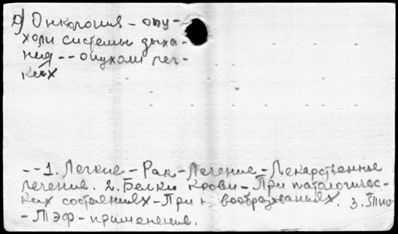 д) Онкология - опу-
холи системы дыха-
ния -- опухоли лег-
ких
--1. Легкие - Рак - Лечение - Лекарственное
лечение. 2. Белки крови - При патологичес-
ких состояниях - При новообразованиях. 3. Тио-
-ТЭФ - применение.